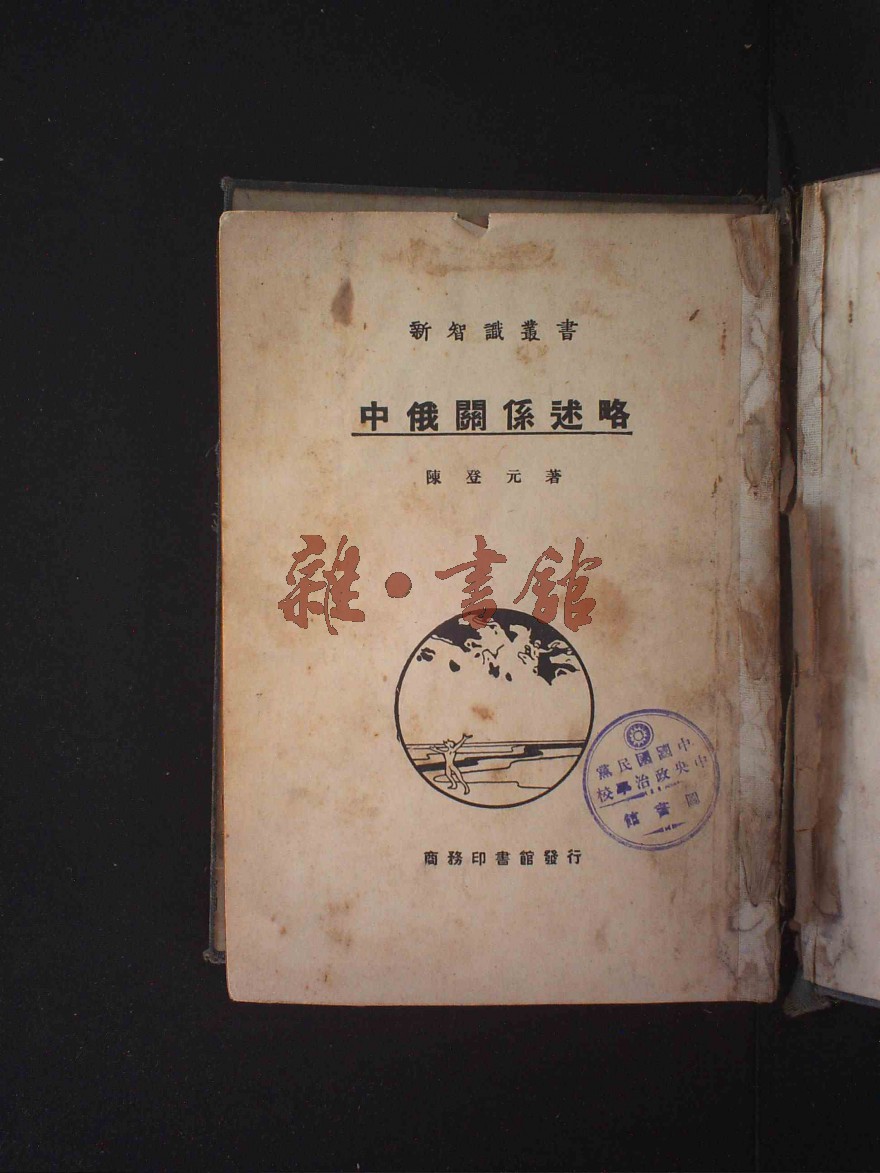 新智識叢書
中俄關係述略
陳登元著
雜·書館
中國國民黨
中央政治學校
圖書館
商務印書館發行